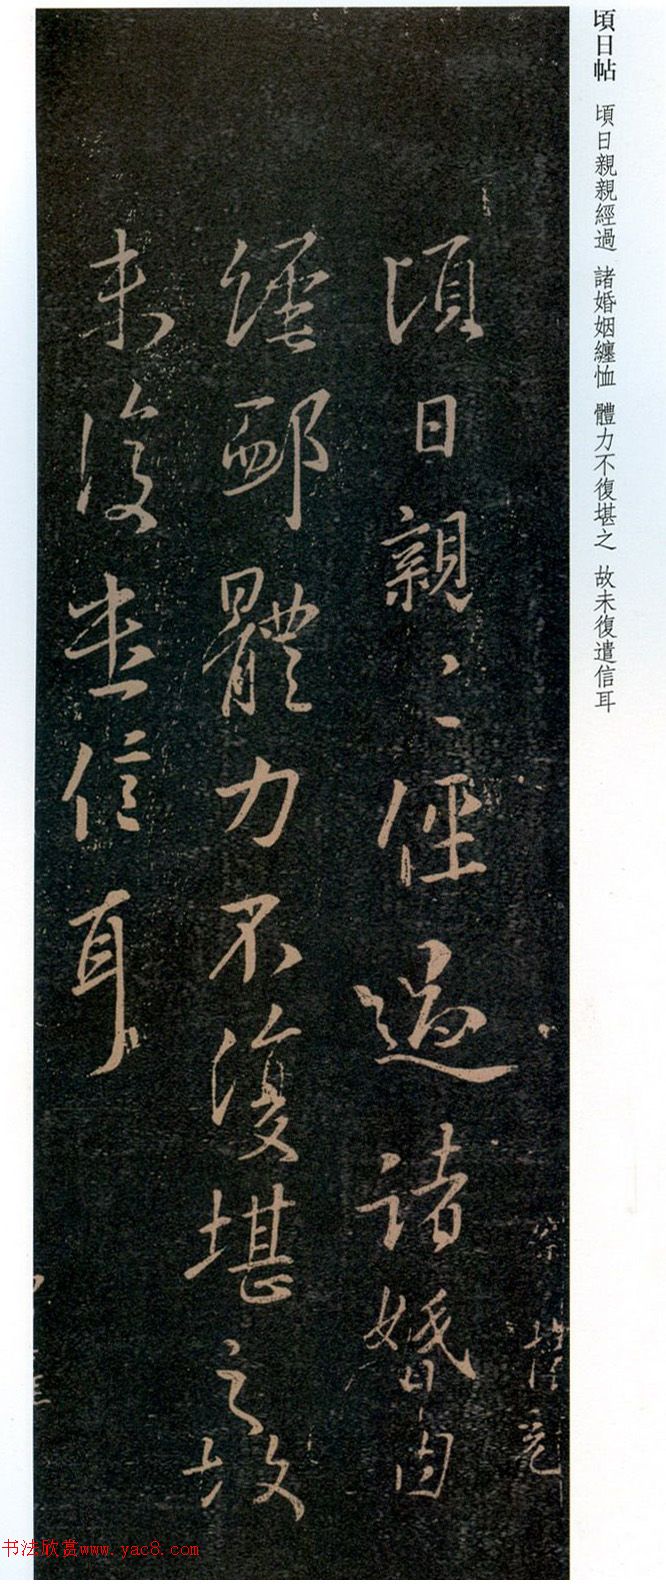 頃日帖 頃日親親經過 諸婚姻纏恤 體力不復堪之 故未復遣信耳
頃日親〻經過諸婚因
纏卹體力不復堪之故
未復遣信耳
书法欣赏www.yac8.com